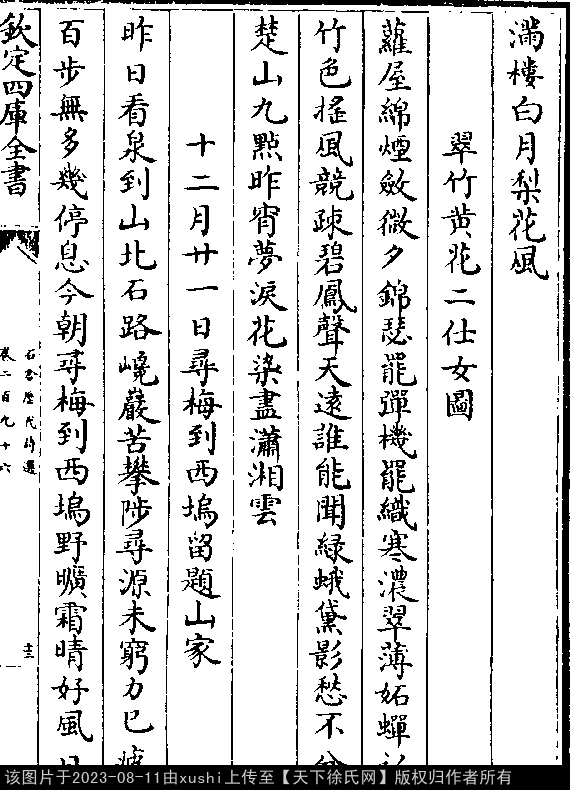 满樓白月梨花風
翠竹黄花二仕女圖
蘿屋綿煙斂微夕錦瑟罷彈機罷織寒濃翠薄妬蟬
竹色揺風競疎碧鳳聲天遠誰能聞緑蛾黛影愁不
楚山九點昨宵夢淚花染盡瀟湘雲
十二月廿一日尋梅到西塢留題山家
昨日看泉到山北石路嶢巖苦攀陟尋源未窮力已疲
百步無多幾停息今朝尋梅到西塢野曠霜晴好風日
欽定四庫全書
石倉歴代詩選
卷二百九十六
该图片于2023-08-11由xushi上传至【天下徐氏网】版权归作者所有